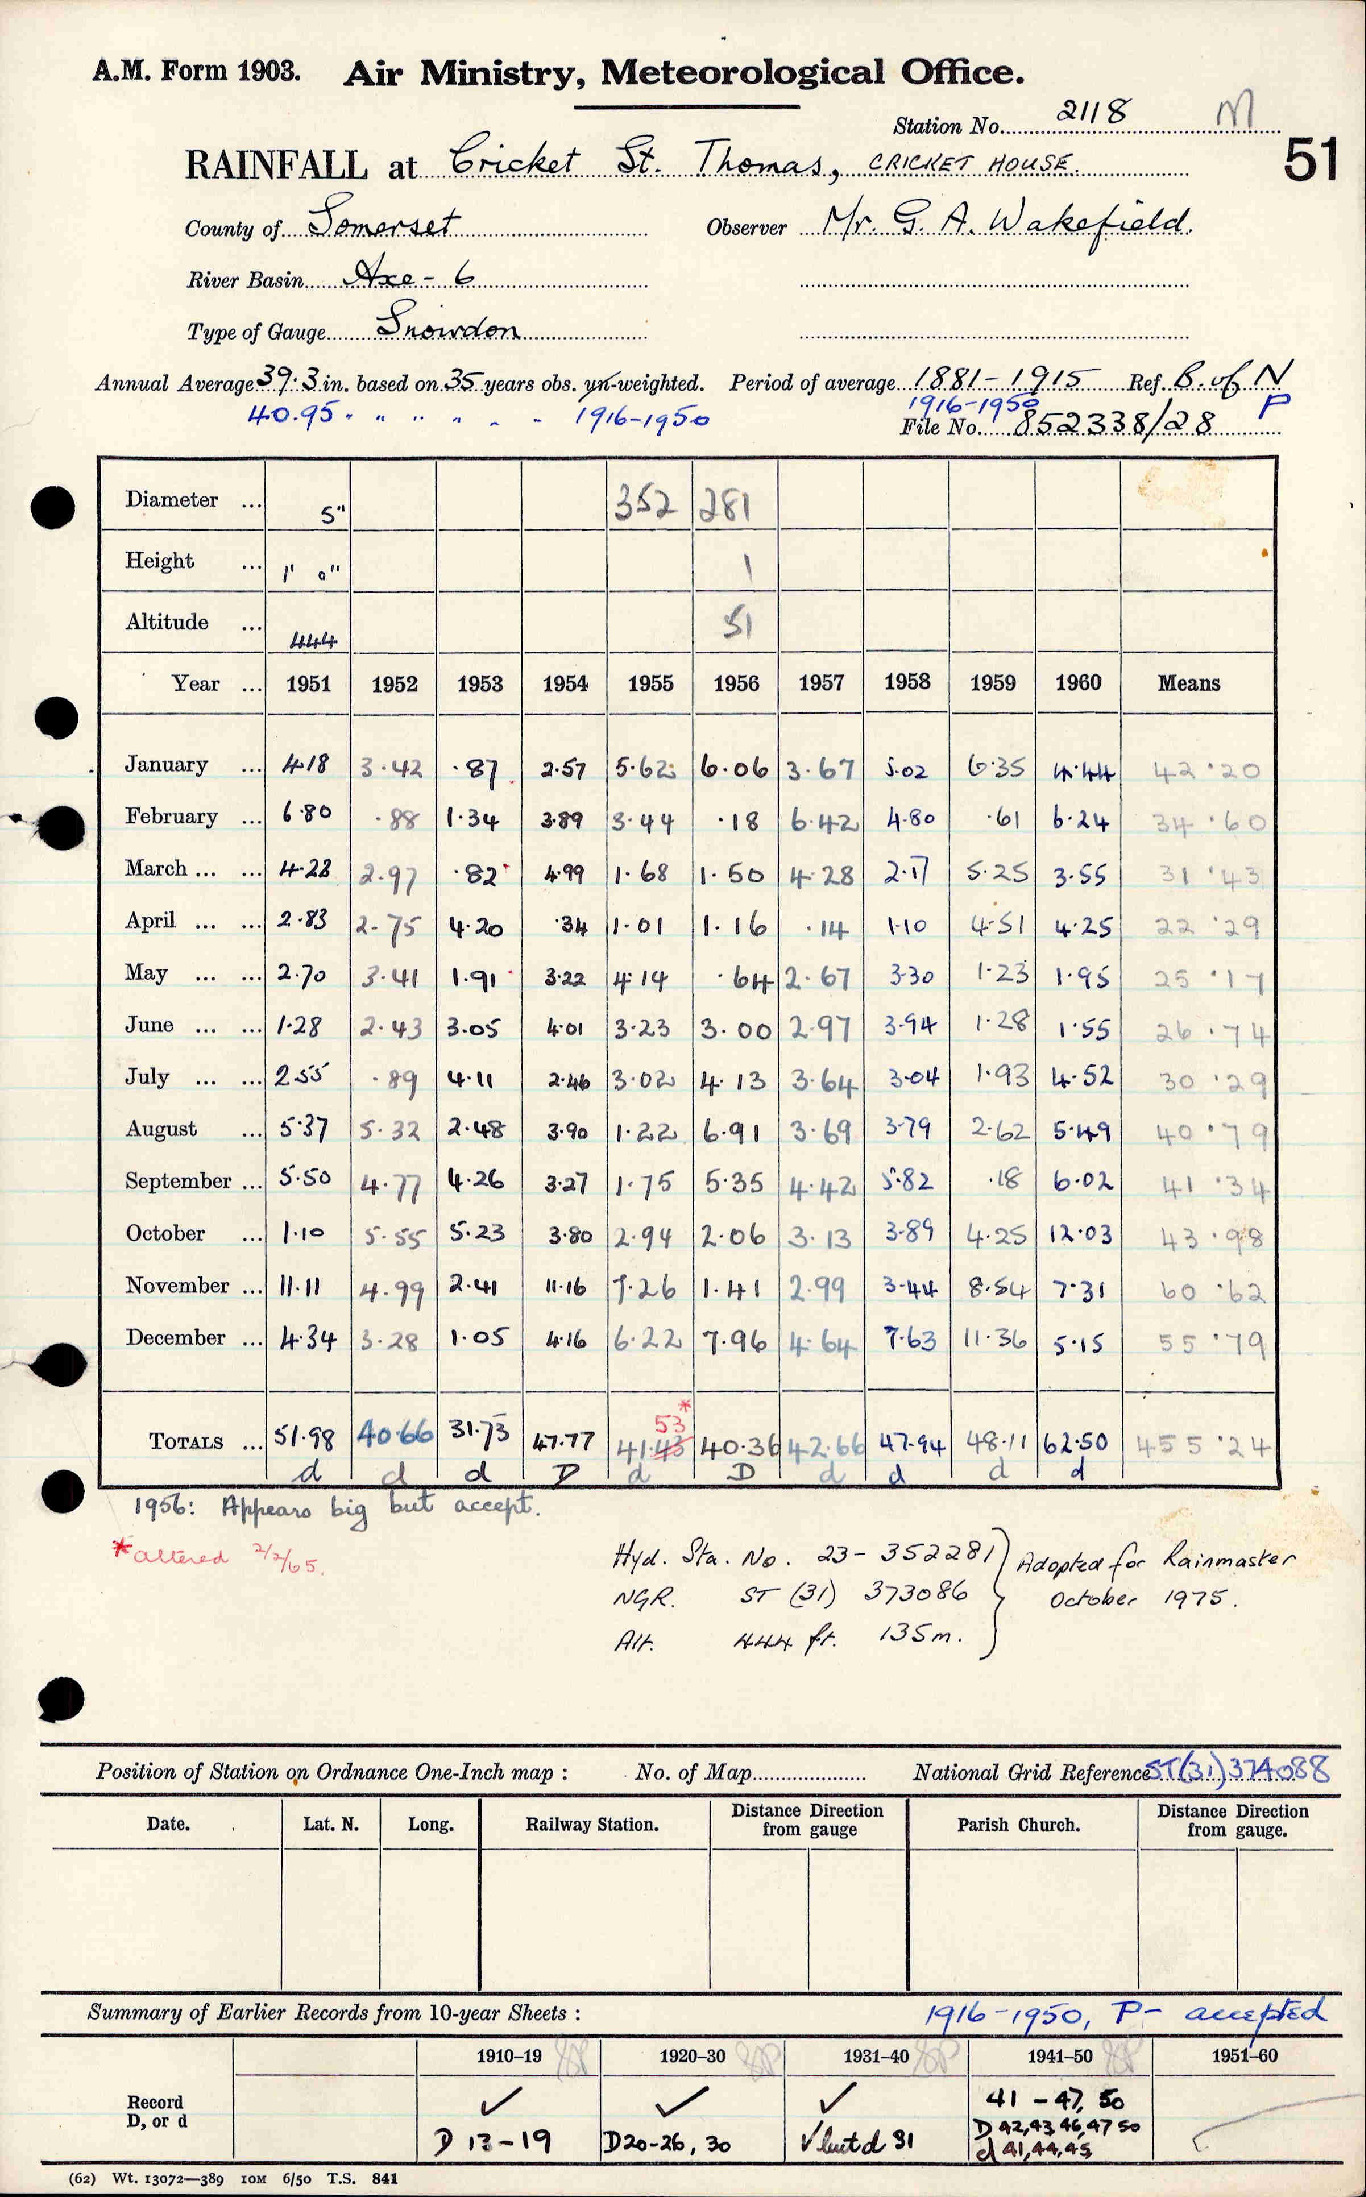 A.M. Form 1903. Air Ministry, Meteorological Office.
Station No. 2118 M
51
RAINFALL at Cricket St. Thomas, CRICKET HOUSE.
County of Somerset Observer Mr. G. A. Wakefield.
River Basin Axe - 6
Type of Gauge Snowdon
Annual Average 39.3 in. based on 35 years obs. un-weighted. Period of average 1881-1915 Ref. B. of N
40.95 " " " " - - 1916-1950 1916-1950 P
File No. 852338/28
Diameter ... 5" 352 281
Height ... 1' 0" 1
Altitude ... 444 51
Year ... 1951 1952 1953 1954 1955 1956 1957 1958 1959 1960 Means
January ... 4.18 3.42 .87 2.57 5.62 6.06 3.67 5.02 6.35 4.44 42.20
February ... 6.80 .88 1.34 3.89 3.44 .18 6.42 4.80 .61 6.24 34.60
March ... ... 4.22 2.97 .82 4.99 1.68 1.50 4.28 2.17 5.25 3.55 31.43
April ... ... 2.83 2.75 4.20 .34 1.01 1.16 .14 1.10 4.51 4.25 22.29
May ... ... 2.70 3.41 1.91 3.22 4.14 .64 2.67 3.30 1.23 1.95 25.17
June ... ... 1.28 2.43 3.05 4.01 3.23 3.00 2.97 3.94 1.28 1.55 26.74
July ... ... 2.55 .89 4.11 2.46 3.02 4.13 3.64 3.04 1.93 4.52 30.29
August ... 5.37 5.32 2.48 3.90 1.22 6.91 3.69 3.79 2.62 5.49 40.79
September ... 5.50 4.77 4.26 3.27 1.75 5.35 4.42 5.82 .18 6.02 41.34
October ... 1.10 5.55 5.23 3.80 2.94 2.06 3.13 3.89 4.25 12.03 43.98
November ... 11.11 4.99 2.41 11.16 7.26 1.41 2.99 3.44 8.54 7.31 60.62
December ... 4.34 3.28 1.05 4.16 6.22 7.96 4.64 7.63 11.36 5.15 55.79
53*
TOTALS ... 51.98 40.66 31.73 47.77 41.43 40.36 42.66 47.94 48.11 62.50 455.24
d d d D d D d d d d
1956: Appears big but accept.
*altered 2/2/65.
Hyd. Sta. No. 23 - 352281 } Adopted for Rainmaster
NGR. ST (31) 373086 October 1975.
Alt. 444 ft. 135m.
Position of Station on Ordnance One-Inch map : No. of Map National Grid Reference ST(31)374088
Date. Lat. N. Long. Railway Station. Distance Direction from gauge Parish Church. Distance Direction from gauge.
Summary of Earlier Records from 10-year Sheets : 1916-1950, P- accepted
1910-19 1920-30 1931-40 1941-50 1951-60
Record ✓ ✓ ✓ 41 - 47, 50
D, or d D 13-19 D20-26, 30 ✓ but d 31 D 42,43,46,47 50
d 41,44,45
(62) Wt. 13072—389 IOM 6/50 T.S. 841